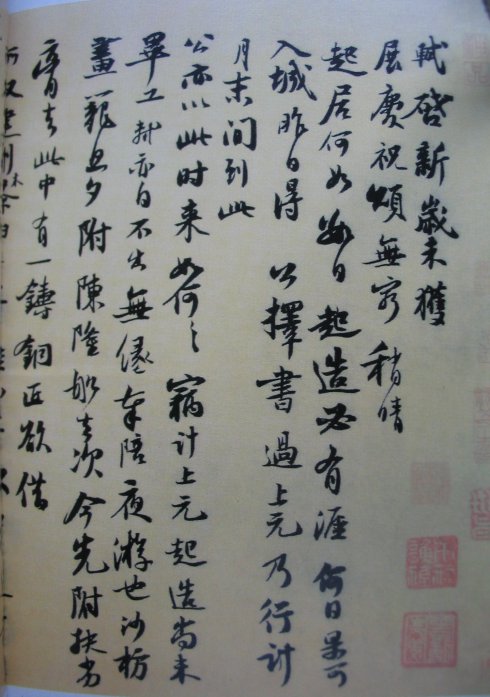 軾啓新歲未獲
展慶祝頌無窮稍晴
起居何如數日起造必有涯何日果可
入城昨日得公擇書過上元乃行計
月末間到此
公亦以此時來如何如何竊計上元起造尚未
畢工軾亦自不出無緣奉陪夜游也沙枋
畫籠旦夕附陳隆船去次今先附扶劣
膏去此中有一鑄銅匠欲借